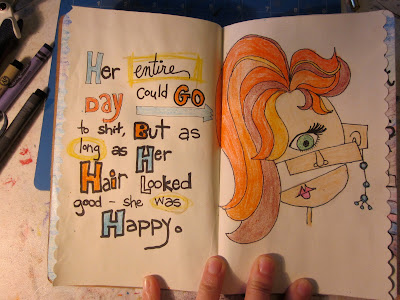 Her entire
Day could Go
to shit, But as
long as Her
Hair Looked
good - she was
Happy.